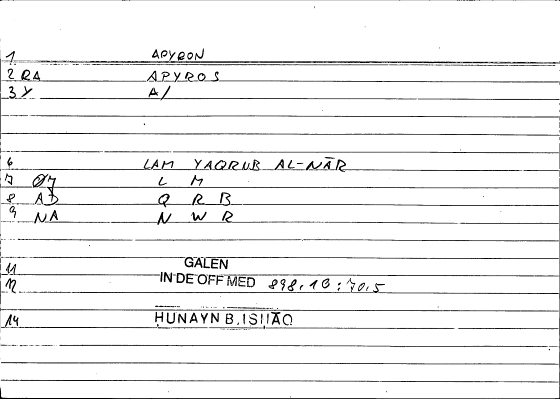 1 APYRON
2 RA APYROS
3 Y A/
6 LAM YAQRUB AL-NĀR
7 L M
8 AD Q R B
9 NA N W R
11 GALEN
12 IN DE OFF MED 898,10:70.5
14 ḤUNAYN B. ISḤĀQ